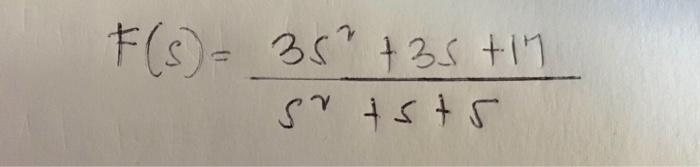 F(s) = 3s² + 3s + 17
s² + s + 5